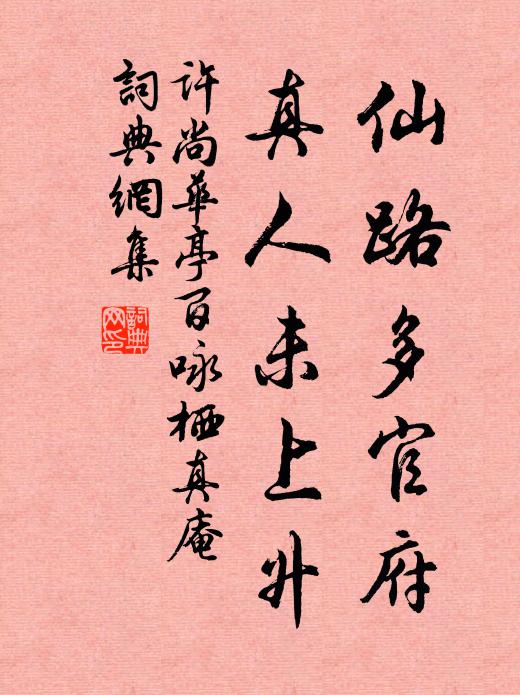 仙路多官府
真人未上升
許尚華亭百咏栖真庵
詞典網集
詞典
网印